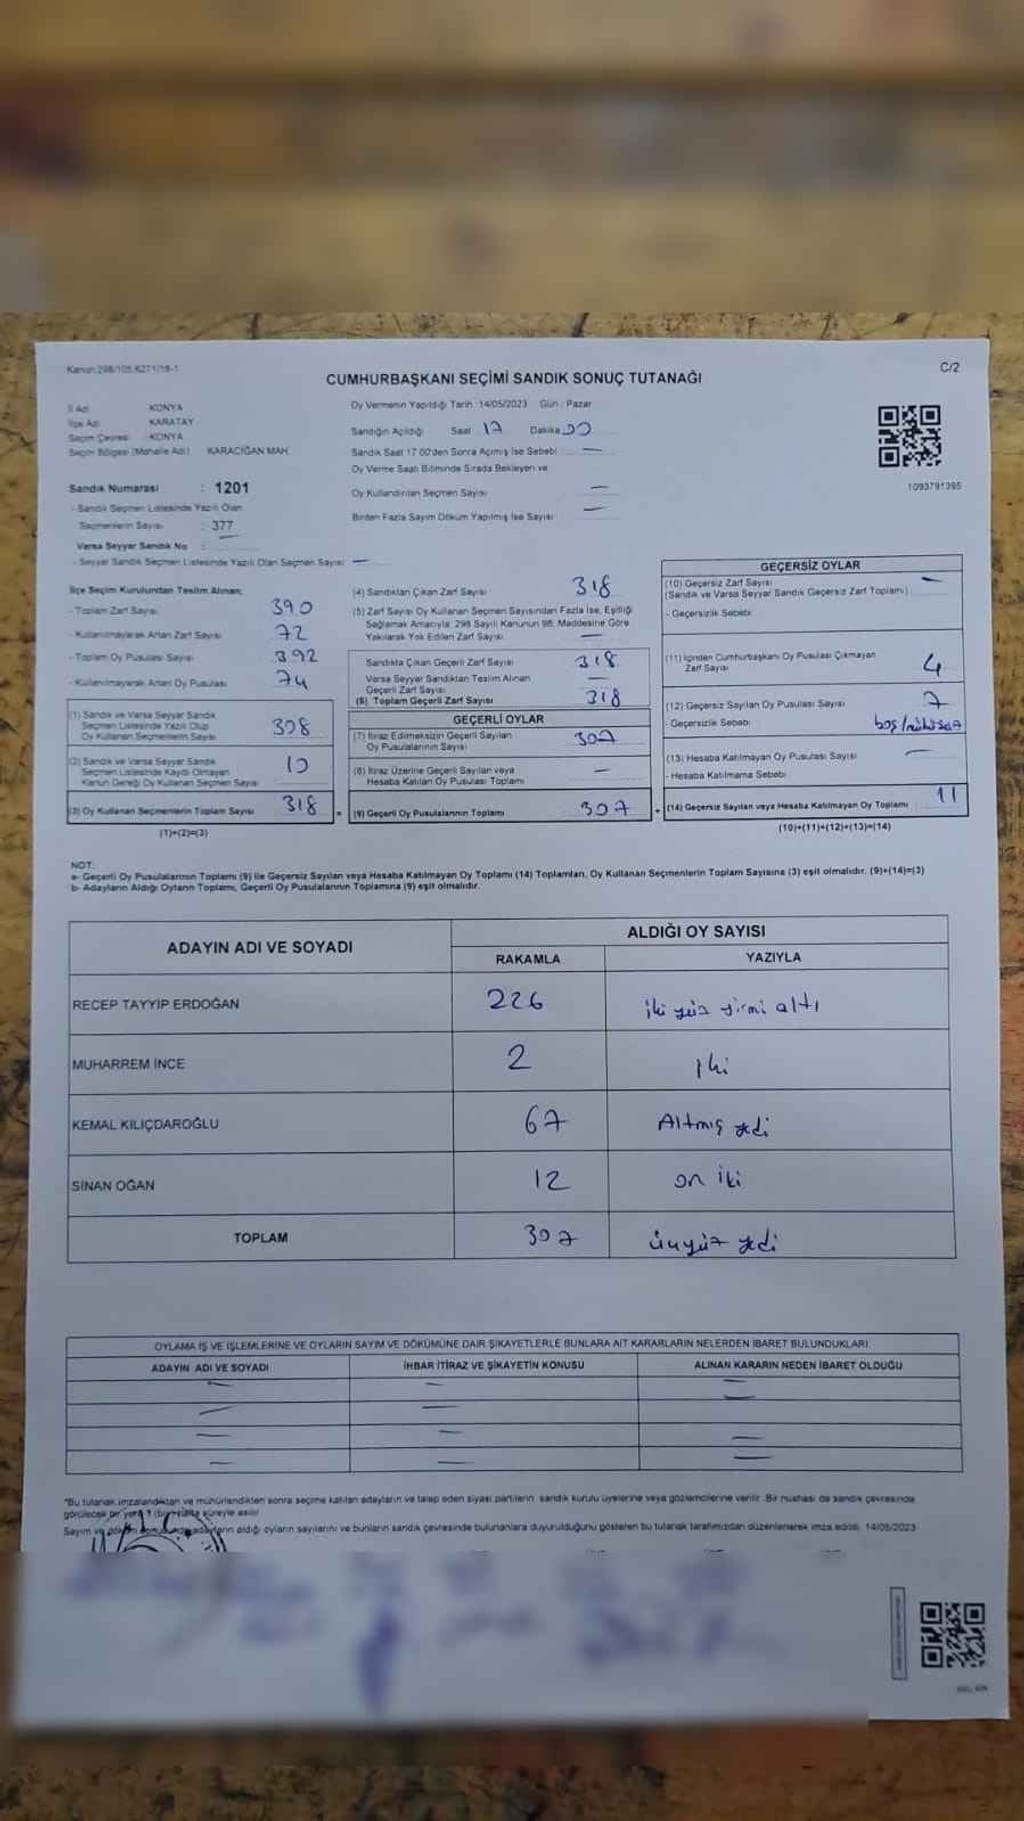 Kanun 298/105,6271/18-1
C/2
CUMHURBAŞKANI SEÇİMİ SANDIK SONUÇ TUTANAĞI
İl Adı KONYA
İlçe Adı KARATAY
Seçim Çevresi KONYA
Seçim Bölgesi (Mahalle Adı) KARACİĞAN MAH.
Sandık Numarası : 1201
- Sandık Seçmen Listesinde Yazılı Olan
Seçmenlerin Sayısı : 377
Varsa Seyyar Sandık No :
- Seyyar Sandık Seçmen Listesinde Yazılı Olan Seçmen Sayısı —
Oy Vermenin Yapıldığı Tarih :14/05/2023 Gün : Pazar
Sandığın Açıldığı Saat 17 Dakika 00
Sandık Saat 17.00'den Sonra Açılmış İse Sebebi —
Oy Verme Saati Bitiminde Sırada Bekleyen ve
Oy Kullandırılan Seçmen Sayısı —
Birden Fazla Sayım Döküm Yapılmış İse Sayısı —
1093791395
İlçe Seçim Kurulundan Teslim Alınan;
- Toplam Zarf Sayısı 390
- Kullanılmayarak Artan Zarf Sayısı 72
- Toplam Oy Pusulası Sayısı 392
- Kullanılmayarak Artan Oy Pusulası 74
(1) Sandık ve Varsa Seyyar Sandık
Seçmen Listesinde Yazılı Olup
Oy Kullanan Seçmenlerin Sayısı 308
(2) Sandık ve Varsa Seyyar Sandık
Seçmen Listesinde Kaydı Olmayan
Kanun Gereği Oy Kullanan Seçmen Sayısı 10
(3) Oy Kullanan Seçmenlerin Toplam Sayısı 318 =
(1)+(2)=(3)
(4) Sandıktan Çıkan Zarf Sayısı 318
(5) Zarf Sayısı Oy Kullanan Seçmen Sayısından Fazla İse, Eşitliği
Sağlamak Amacıyla; 298 Sayılı Kanunun 98. Maddesine Göre
Yakılarak Yok Edilen Zarf Sayısı —
Sandıkta Çıkan Geçerli Zarf Sayısı 318
Varsa Seyyar Sandıktan Teslim Alınan
Geçerli Zarf Sayısı —
(6) Toplam Geçerli Zarf Sayısı 318
GEÇERLİ OYLAR
(7) İtiraz Edilmeksizin Geçerli Sayılan
Oy Pusulalarının Sayısı 307
(8) İtiraz Üzerine Geçerli Sayılan veya
Hesaba Katılan Oy Pusulası Toplamı —
(9) Geçerli Oy Pusulalarının Toplamı 307 +
GEÇERSİZ OYLAR
(10) Geçersiz Zarf Sayısı
(Sandık ve Varsa Seyyar Sandık Geçersiz Zarf Toplamı) —
- Geçersizlik Sebebi
(11) İçinden Cumhurbaşkanı Oy Pusulası Çıkmayan
Zarf Sayısı 4
(12) Geçersiz Sayılan Oy Pusulası Sayısı 7
- Geçersizlik Sebebi boş/mühürsüz
(13) Hesaba Katılmayan Oy Pusulası Sayısı —
- Hesaba Katılmama Sebebi
(14) Geçersiz Sayılan veya Hesaba Katılmayan Oy Toplamı 11
(10)+(11)+(12)+(13)=(14)
NOT:
a- Geçerli Oy Pusulalarının Toplamı (9) ile Geçersiz Sayılan veya Hesaba Katılmayan Oy Toplamı (14) Toplamları, Oy Kullanan Seçmenlerin Toplam Sayısına (3) eşit olmalıdır. (9)+(14)=(3)
b- Adayların Aldığı Oyların Toplamı, Geçerli Oy Pusulalarının Toplamına (9) eşit olmalıdır.
ADAYIN ADI VE SOYADI
ALDIĞI OY SAYISI
RAKAMLA YAZIYLA
RECEP TAYYİP ERDOĞAN 226 iki yüz yirmi altı
MUHARREM İNCE 2 iki
KEMAL KILIÇDAROĞLU 67 Altmış yedi
SİNAN OĞAN 12 on iki
TOPLAM 307 üçyüz yedi
OYLAMA İŞ VE İŞLEMLERİNE VE OYLARIN SAYIM VE DÖKÜMÜNE DAİR ŞİKAYETLERLE BUNLARA AİT KARARLARIN NELERDEN İBARET BULUNDUKLARI
ADAYIN ADI VE SOYADI İHBAR İTİRAZ VE ŞİKAYETİN KONUSU ALINAN KARARIN NEDEN İBARET OLDUĞU
*Bu tutanak imzalandıktan ve mühürlendikten sonra seçime katılan adayların ve talep eden siyasi partilerin sandık kurulu üyelerine veya gözlemcilerine verilir. Bir nüshası da sandık çevresinde
görülecek bir yere bir hafta süreyle asılır.
Sayım ve döküm sonucunda adayların aldığı oyların sayılarını ve bunların sandık çevresinde bulunanlara duyurulduğunu gösteren bu tutanak tarafımızdan düzenlenerek imza edildi. 14/05/2023